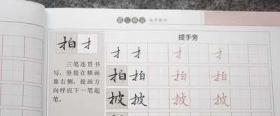 提手旁
拍 扌
三笔连贯书
写，竖提在横画
靠右侧，提画方
向呼应下一笔起
笔。
扌 扌 扌 扌
拍 拍 拍 拍
披 披 披 披